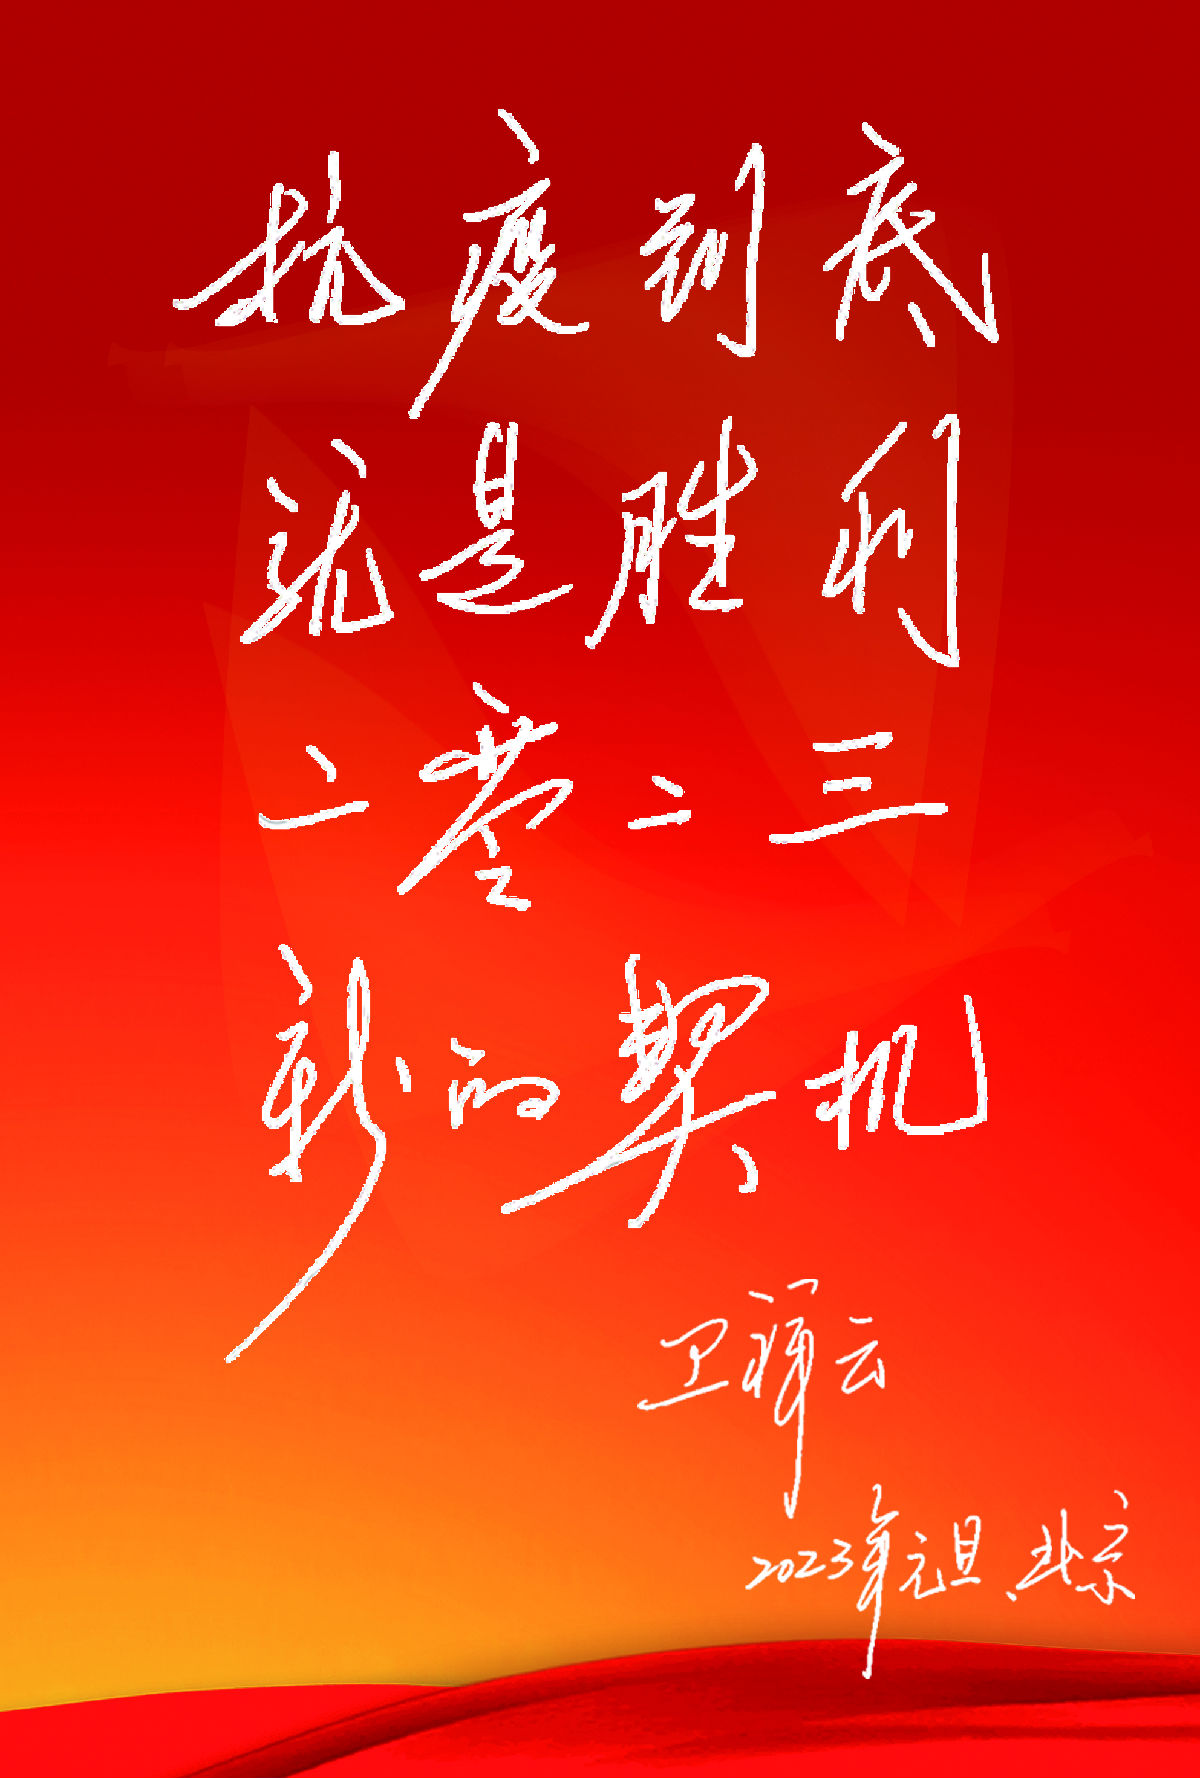 抗疫到底
就是胜利
二零二三
新的契机
卫祥云
2023年元旦、北京